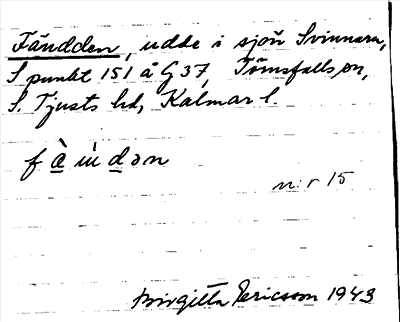 Fändden, udde i sjön Svinnaren,
S punkt 151 å G 37, Törnsfalls sn,
S. Tjusts hd, Kalmar l.
fä̀ndən
n:r 15
Birgitta Ericsson 1943